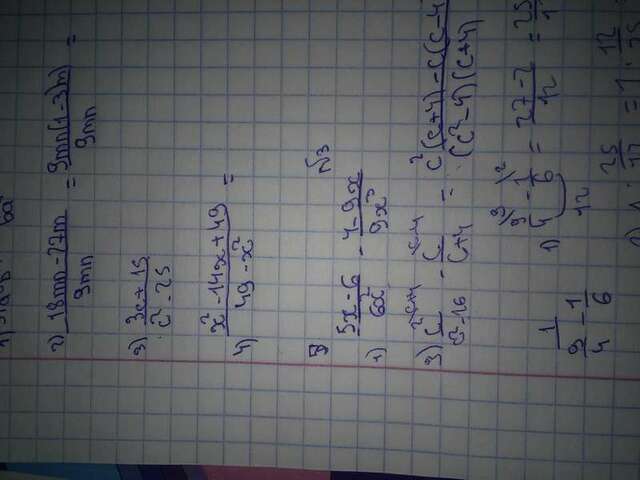 2) (18mn - 27m)/(9mn) = (9mn(1-3)m)/(9mn) =
3) (3c + 15)/(c² - 25)
4) (x² - 14x + 49)/(49 - x²) =
№3
1) (5x - 6)/(6x²) - (4 - 9x)/(9x³)
3) c²/(c² - 16) - c/(c+4) = (c²(c+4) - c(c-4)/((c²-4)(c+4)
1/(9/4 - 1/6)
1) 9/4 - 1/6 = (27-2)/12 = 25/
12